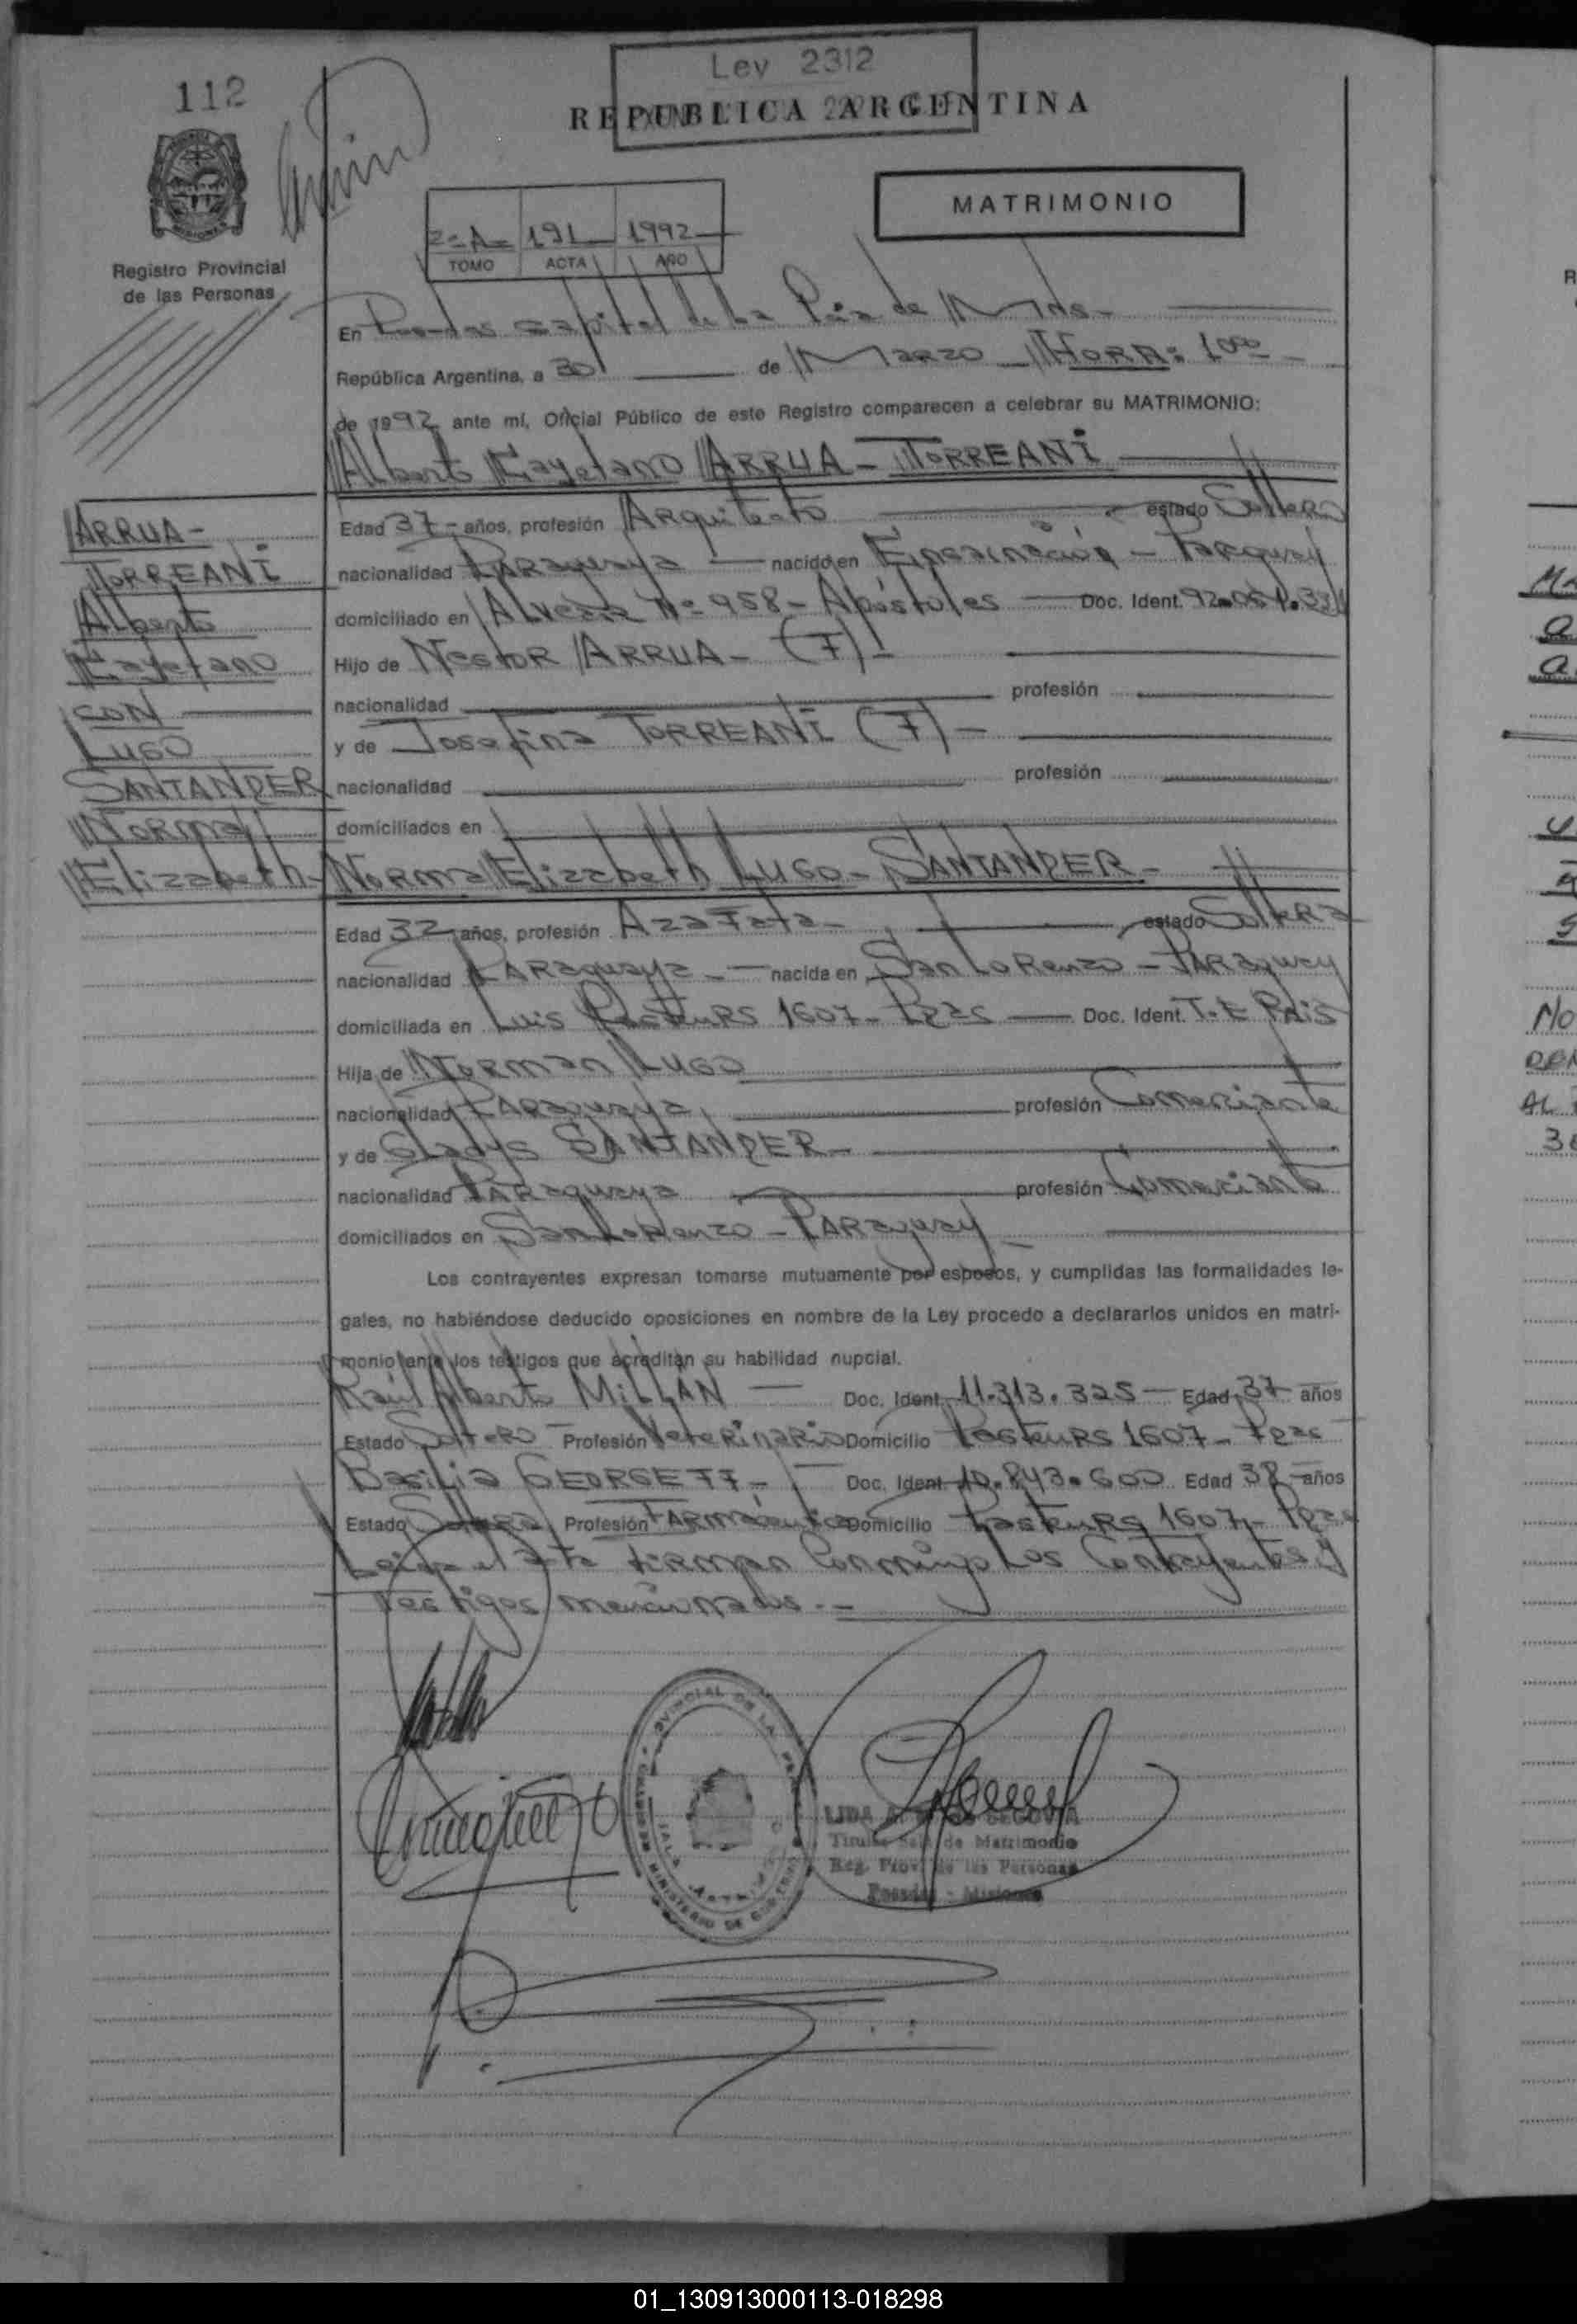 112
Ley 2312
REPUBLICA ARGENTINA
MATRIMONIO
2º A 191 1992
TOMO ACTA AÑO
MISIONES
Registro Provincial
de las Personas
En Posadas capital de La Pcia de Mnes.-
República Argentina, a 30 de Marzo HORA: 10ºº
de 1992 ante mí, Oficial Público de este Registro comparecen a celebrar su MATRIMONIO:
Alberto Cayetano ARRUA - TORREANI
ARRUA -
TORREANI
Alberto
Cayetano
CON
LUGO
SANTANDER
Norma
Elizabeth-
Edad 37- años, profesión Arquitecto estado Soltero
nacionalidad Paraguaya nacido en Encarnación - Paraguay
domiciliado en Alvear Nº 958 - Apóstoles Doc. Ident.
Hijo de Nestor ARRUA - (F) -
nacionalidad profesión
y de Josefina TORREANI (F) -
nacionalidad profesión
domiciliados en
Norma Elizabeth LUGO - SANTANDER -
Edad 32 años, profesión Azafata - estado Soltera
nacionalidad Paraguaya - nacida en San Lorenzo - Paraguay
domiciliada en Luis Pasteurs 1607 - Pdas Doc. Ident. T.E Pais
Hija de Norman LUGO
nacionalidad Paraguaya profesión Comerciante
y de Gladys SANTANDER -
nacionalidad Paraguaya profesión Comerciante
domiciliados en San Lorenzo - Paraguay
Los contrayentes expresan tomarse mutuamente por esposos, y cumplidas las formalidades le-
gales, no habiéndose deducido oposiciones en nombre de la Ley procedo a declararlos unidos en matri-
monio ante los testigos que acreditan su habilidad nupcial.
Raúl Alberto MiLLÁN Doc. Ident. 11.313.325 - Edad 37 años
Estado Soltero Profesión Veterinario Domicilio Pasteurs 1607 - Pdas
Basilia GEORGEFF - Doc. Ident. 10.843.600 Edad 38 años
Estado Soltera Profesión Farmáceutica Domicilio Pasteurs 1607 - Pdas
Leida el Acta firman Conmigo Los Contrayentes y
Testigos mencionados.-
SEGOVIA
Titular Sala de Matrimonio
Reg. Prov. de las Personas
Posadas - Misiones
MINISTERIO DE GOBIERNO
01_130913000113-018298